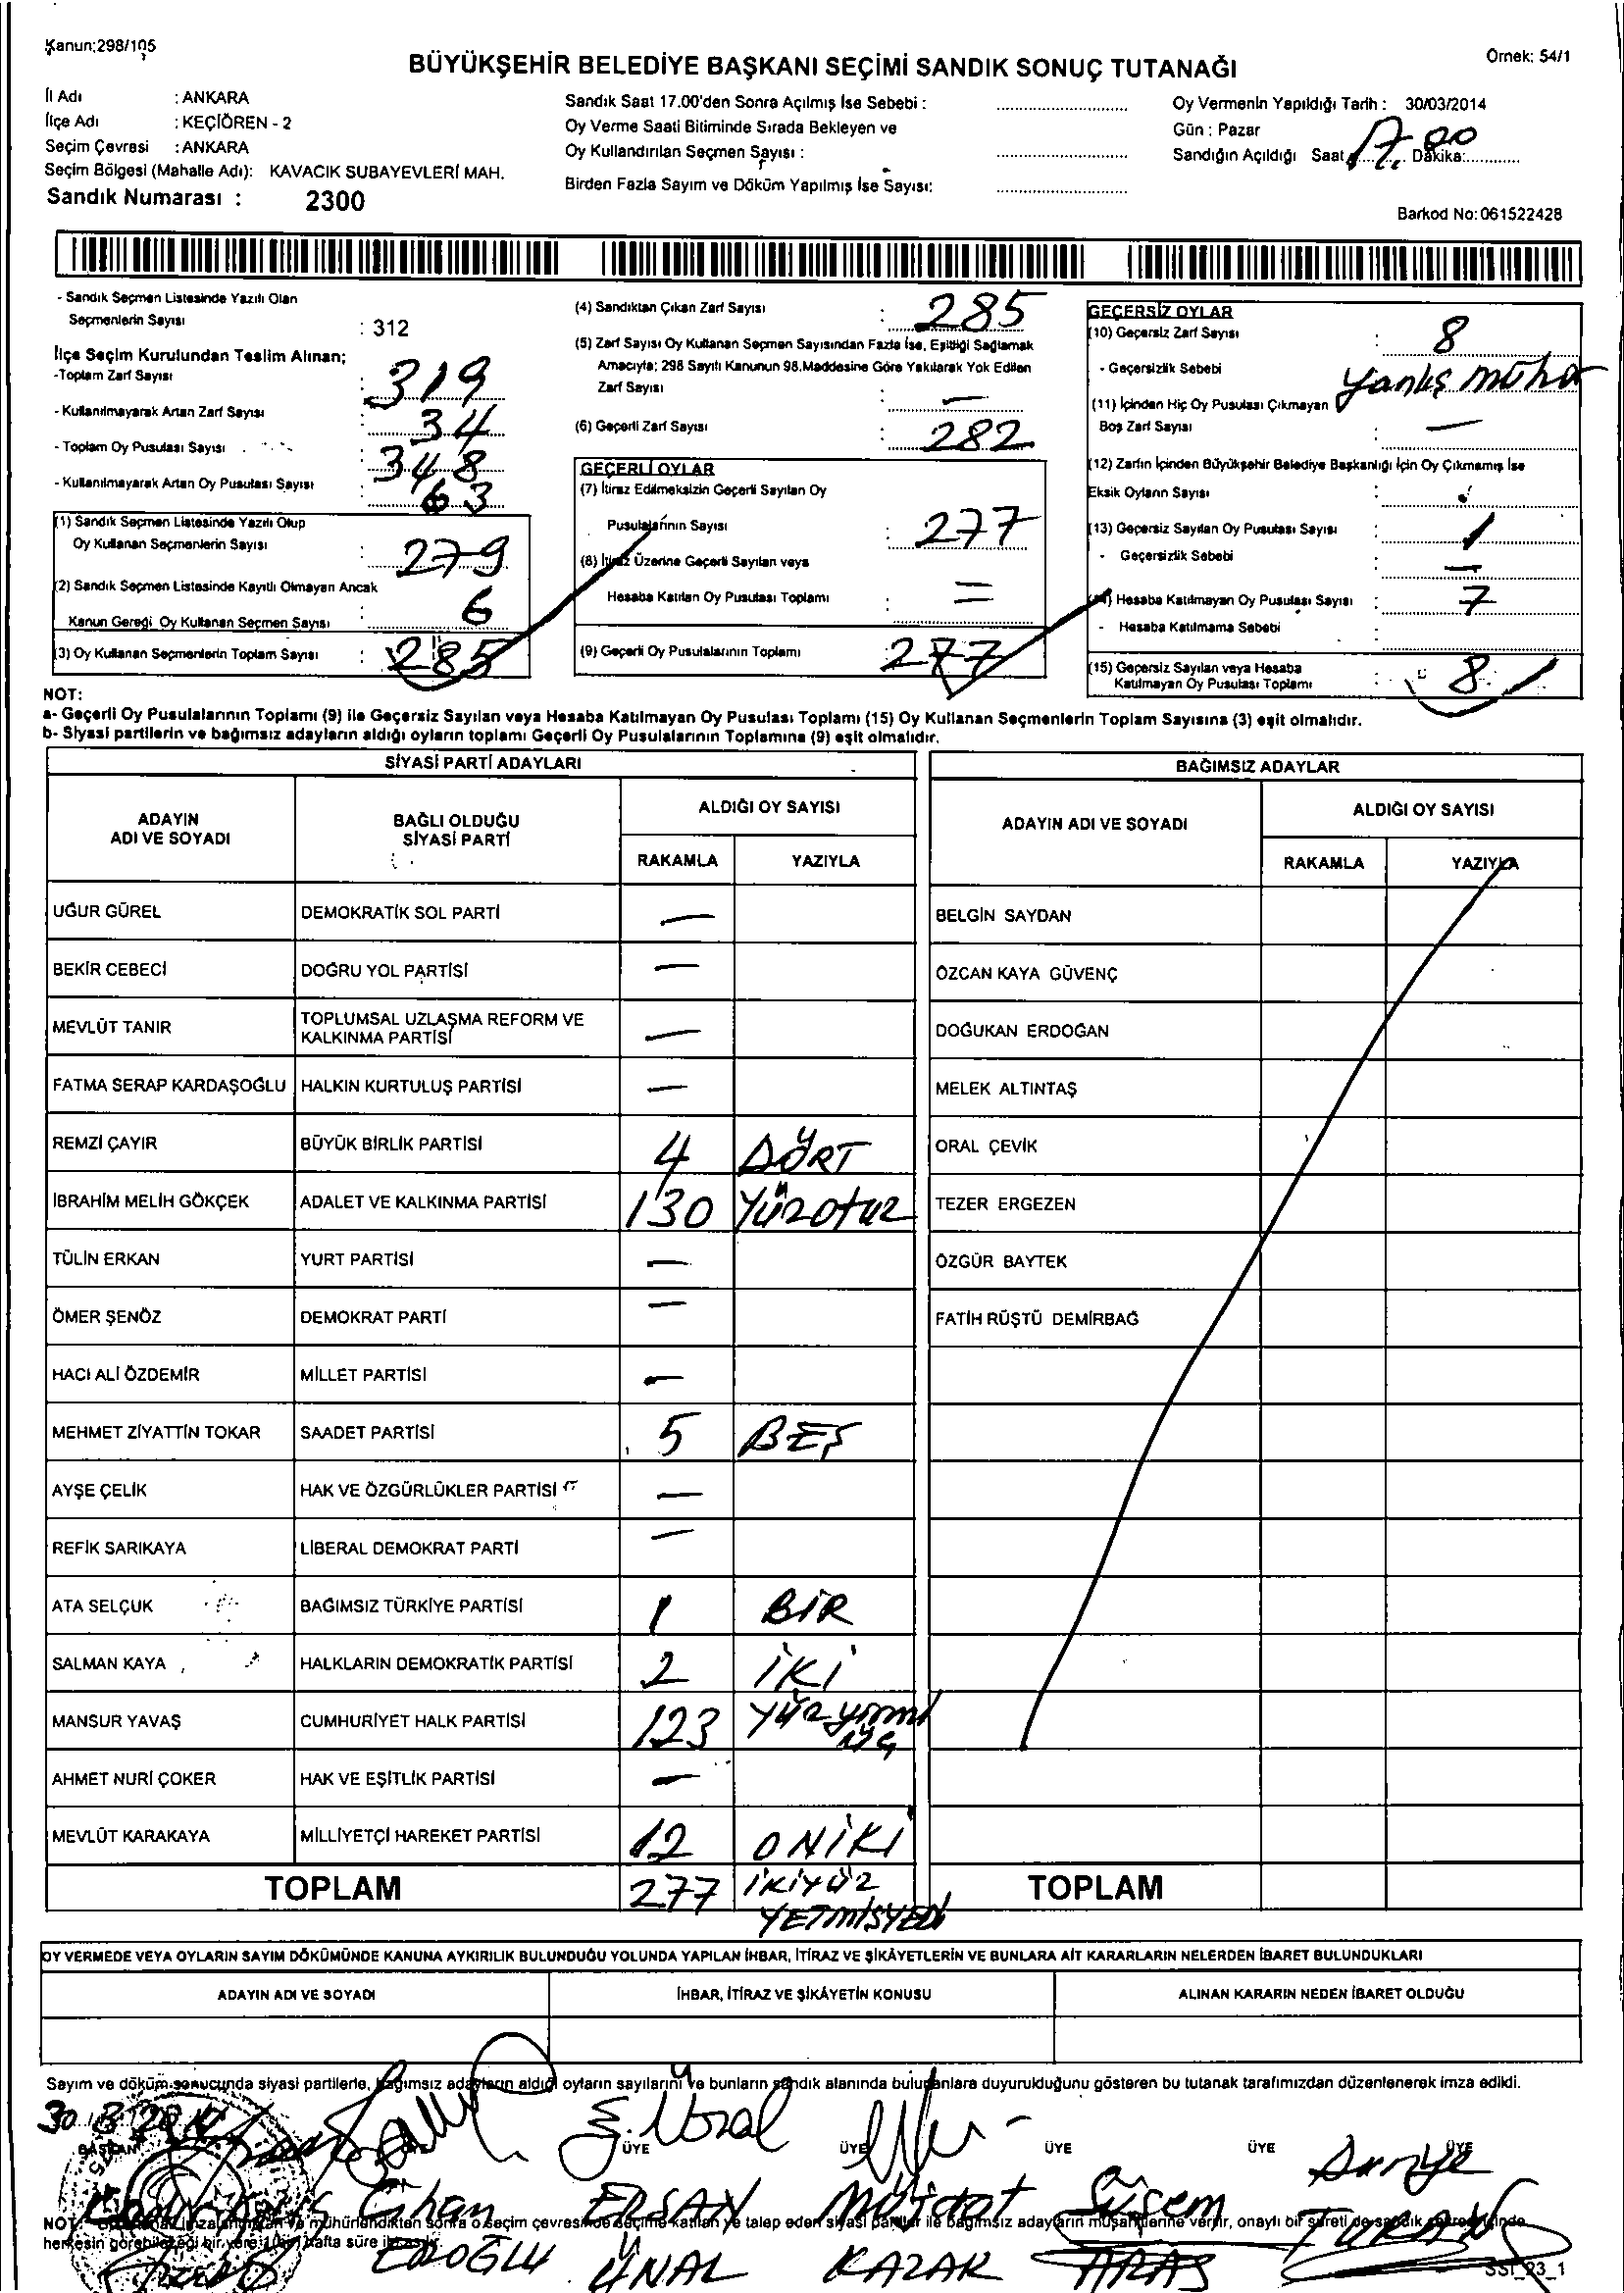 Kanun;298/105
Örnek: 54/1
BÜYÜKŞEHİR BELEDİYE BAŞKANI SEÇİMİ SANDIK SONUÇ TUTANAĞI
İl Adı : ANKARA
İlçe Adı : KEÇİÖREN - 2
Seçim Çevresi : ANKARA
Seçim Bölgesi (Mahalle Adı): KAVACIK SUBAYEVLERİ MAH.
Sandık Numarası : 2300
Sandık Saat 17.00'den Sonra Açılmış İse Sebebi :
Oy Verme Saati Bitiminde Sırada Bekleyen ve
Oy Kullandırılan Seçmen Sayısı :
Birden Fazla Sayım ve Döküm Yapılmış İse Sayısı:
Oy Vermenin Yapıldığı Tarih : 30/03/2014
Gün : Pazar
Sandığın Açıldığı Saat 17. Dakika: 00
Barkod No: 061522428
- Sandık Seçmen Listesinde Yazılı Olan
Seçmenlerin Sayısı : 312
İlçe Seçim Kurulundan Teslim Alınan;
-Toplam Zarf Sayısı : 319
- Kullanılmayarak Artan Zarf Sayısı : 34
- Toplam Oy Pusulası Sayısı : 348
- Kullanılmayarak Artan Oy Pusulası Sayısı : 63
(1) Sandık Seçmen Listesinde Yazılı Olup
Oy Kullanan Seçmenlerin Sayısı : 279
(2) Sandık Seçmen Listesinde Kayıtlı Olmayan Ancak
Kanun Gereği Oy Kullanan Seçmen Sayısı : 6
(3) Oy Kullanan Seçmenlerin Toplam Sayısı : 285
(4) Sandıktan Çıkan Zarf Sayısı : 285
(5) Zarf Sayısı Oy Kullanan Seçmen Sayısından Fazla İse, Eşitliği Sağlamak
Amacıyla; 298 Sayılı Kanunun 98.Maddesine Göre Yakılarak Yok Edilen
Zarf Sayısı : —
(6) Geçerli Zarf Sayısı : 282
GEÇERLİ OYLAR
(7) İtiraz Edilmeksizin Geçerli Sayılan Oy
Pusulalarının Sayısı : 277
(8) İtiraz Üzerine Geçerli Sayılan veya
Hesaba Katılan Oy Pusulası Toplamı : =
(9) Geçerli Oy Pusulalarının Toplamı 277
GEÇERSİZ OYLAR
(10) Geçersiz Zarf Sayısı : 8
- Geçersizlik Sebebi : Yanlış mühür
(11) İçinden Hiç Oy Pusulası Çıkmayan
Boş Zarf Sayısı : —
(12) Zarfın İçinden Büyükşehir Belediye Başkanlığı İçin Oy Çıkmamış İse
Eksik Oyların Sayısı :
(13) Geçersiz Sayılan Oy Pusulası Sayısı : 1
- Geçersizlik Sebebi : —
(14) Hesaba Katılmayan Oy Pusulası Sayısı : 7
- Hesaba Katılmama Sebebi :
(15) Geçersiz Sayılan veya Hesaba
Katılmayan Oy Pusulası Toplamı : 8
NOT:
a- Geçerli Oy Pusulalarının Toplamı (9) ile Geçersiz Sayılan veya Hesaba Katılmayan Oy Pusulası Toplamı (15) Oy Kullanan Seçmenlerin Toplam Sayısına (3) eşit olmalıdır.
b- Siyasi partilerin ve bağımsız adayların aldığı oyların toplamı Geçerli Oy Pusulalarının Toplamına (9) eşit olmalıdır.
SİYASİ PARTİ ADAYLARI
ADAYIN ADI VE SOYADI
BAĞLI OLDUĞU SİYASİ PARTİ
ALDIĞI OY SAYISI
RAKAMLA YAZIYLA
UĞUR GÜREL DEMOKRATİK SOL PARTİ —
BEKİR CEBECİ DOĞRU YOL PARTİSİ —
MEVLÜT TANIR TOPLUMSAL UZLAŞMA REFORM VE KALKINMA PARTİSİ —
FATMA SERAP KARDAŞOĞLU HALKIN KURTULUŞ PARTİSİ —
REMZİ ÇAYIR BÜYÜK BİRLİK PARTİSİ 4 DÖRT
İBRAHİM MELİH GÖKÇEK ADALET VE KALKINMA PARTİSİ 130 Yüzotuz
TÜLİN ERKAN YURT PARTİSİ —
ÖMER ŞENÖZ DEMOKRAT PARTİ —
HACI ALİ ÖZDEMİR MİLLET PARTİSİ —
MEHMET ZİYATTİN TOKAR SAADET PARTİSİ 5 BEŞ
AYŞE ÇELİK HAK VE ÖZGÜRLÜKLER PARTİSİ —
REFİK SARIKAYA LİBERAL DEMOKRAT PARTİ —
ATA SELÇUK BAĞIMSIZ TÜRKİYE PARTİSİ 1 BİR
SALMAN KAYA HALKLARIN DEMOKRATİK PARTİSİ 2 İKİ
MANSUR YAVAŞ CUMHURİYET HALK PARTİSİ 123 Yüzyirmi üç
AHMET NURİ ÇOKER HAK VE EŞİTLİK PARTİSİ —
MEVLÜT KARAKAYA MİLLİYETÇİ HAREKET PARTİSİ 12 ONİKİ
TOPLAM 277 İKİYÜZ YETMİŞYEDİ
BAĞIMSIZ ADAYLAR
ADAYIN ADI VE SOYADI
ALDIĞI OY SAYISI
RAKAMLA YAZIYLA
BELGİN SAYDAN
ÖZCAN KAYA GÜVENÇ
DOĞUKAN ERDOĞAN
MELEK ALTINTAŞ
ORAL ÇEVİK
TEZER ERGEZEN
ÖZGÜR BAYTEK
FATİH RÜŞTÜ DEMİRBAĞ
TOPLAM
OY VERMEDE VEYA OYLARIN SAYIM DÖKÜMÜNDE KANUNA AYKIRILIK BULUNDUĞU YOLUNDA YAPILAN İHBAR, İTİRAZ VE ŞİKÂYETLERİN VE BUNLARA AİT KARARLARIN NELERDEN İBARET BULUNDUKLARI
ADAYIN ADI VE SOYADI
İHBAR, İTİRAZ VE ŞİKÂYETİN KONUSU
ALINAN KARARIN NEDEN İBARET OLDUĞU
Sayım ve döküm sonucunda siyasi partilerle, bağımsız adayların aldığı oyların sayılarını ve bunların sandık alanında bulunanlara duyurulduğunu gösteren bu tutanak tarafımızdan düzenlenerek imza edildi.
BAŞKAN ÜYE ÜYE ÜYE ÜYE ÜYE
Cihan ERSAN Müjdat Sinem
EROĞLU ÜNAL KAZAR ARAS TURAN
NOT: mühürlendikten sonra o seçim çevresinde seçime katılan ve talep eden siyasi partiler ile bağımsız adayların müşahitlerine verilir, onaylı bir sureti de sandık
herkesin görebileceği bir yere hafta süre ile asılır.
SSİ_23_1